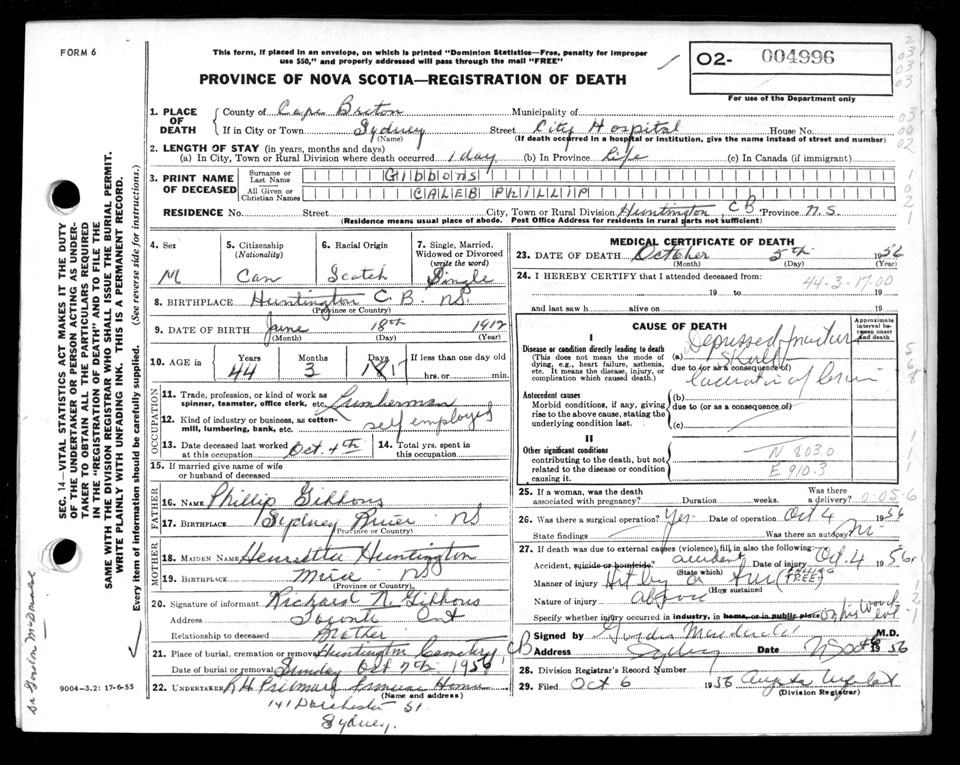 FORM 6
This form, if placed in an envelope, on which is printed "Dominion Statistics—Free, penalty for improper
use $50," and properly addressed will pass through the mail "FREE"
02- 004996
For use of the Department only
PROVINCE OF NOVA SCOTIA—REGISTRATION OF DEATH
1. PLACE OF DEATH
County of Cape Breton Municipality of
If in City or Town Sydney Street City Hospital House No.
(Name) (If death occurred in a hospital or institution, give the name instead of street and number)
2. LENGTH OF STAY (in years, months and days)
(a) In City, Town or Rural Division where death occurred 1 day (b) In Province Life (c) In Canada (if immigrant)
3. PRINT NAME OF DECEASED
Surname or Last Name Gibbons
All Given or Christian Names CALEB PHILLIP
RESIDENCE No. Street City, Town or Rural Division Huntington, CB Province N.S.
(Residence means usual place of abode. Post Office Address for residents in rural parts not sufficient)
4. Sex M
5. Citizenship (Nationality) Can
6. Racial Origin Scotch
7. Single, Married, Widowed or Divorced (write the word) Single
8. BIRTHPLACE Huntington C.B. N.S.
(Province or Country)
9. DATE OF BIRTH June 18th 1912
(Month) (Day) (Year)
10. AGE in Years 44 Months 3 Days If less than one day old hrs. or min.
OCCUPATION
11. Trade, profession, or kind of work as spinner, teamster, office clerk, etc. Lumberman
12. Kind of industry or business, as cotton-mill, lumbering, bank, etc. self employed
13. Date deceased last worked at this occupation Oct 4th
14. Total yrs. spent in this occupation
15. If married give name of wife or husband of deceased
FATHER
16. NAME Phillip Gibbons
17. BIRTHPLACE Sydney River NS
(Province or Country)
MOTHER
18. MAIDEN NAME Henrietta Huntington
19. BIRTHPLACE Mira NS
(Province or Country)
20. Signature of informant Richard N. Gibbons
Address Toronto Ont
Relationship to deceased Brother
21. Place of burial, cremation or removal Huntington Cemetery, CB
Date of burial or removal Sunday Oct 7th 1956
22. UNDERTAKER
(Name and address)
141 Dorchester St.
Sydney.
MEDICAL CERTIFICATE OF DEATH
23. DATE OF DEATH October 5th 1956
(Month) (Day) (Year)
24. I HEREBY CERTIFY that I attended deceased from:
44-3-17-00
19 to 19
and last saw h alive on 19
CAUSE OF DEATH
Approximate interval between onset and death
I
Disease or condition directly leading to death
(This does not mean the mode of dying, e.g., heart failure, asthenia, etc. It means the disease, injury, or complication which caused death.)
(a) Depressed fracture Skull
due to (or as a consequence of)
laceration of brain
Antecedent causes
Morbid conditions, if any, giving rise to the above cause, stating the underlying condition last.
(b)
due to (or as a consequence of)
(c)
II
Other significant conditions
contributing to the death, but not related to the disease or condition causing it.
N 803.0
E 910.3
25. If a woman, was the death associated with pregnancy? Duration weeks. Was there a delivery? 0-05-6
26. Was there a surgical operation? Yes Date of operation Oct 4 1956
State findings Was there an autopsy? No
27. If death was due to external causes (violence) fill in also the following:
Accident, suicide or homicide? accident Date of injury Oct. 4 1956
(State which)
Manner of injury Hit by a tree (FALLING TREE)
(How sustained)
Nature of injury above
Specify whether injury occurred in industry, in home, or in public place
Signed by M.D.
Address Sydney Date 1956
28. Division Registrar's Record Number
29. Filed Oct 6 1956
(Division Registrar)
SEC. 14—VITAL STATISTICS ACT MAKES IT THE DUTY
OF THE UNDERTAKER OR PERSON ACTING AS UNDER-
TAKER TO OBTAIN ALL THE PARTICULARS REQUIRED
IN THE "REGISTRATION OF DEATH" AND TO FILE THE
SAME WITH THE DIVISION REGISTRAR WHO SHALL ISSUE THE BURIAL PERMIT.
WRITE PLAINLY WITH UNFADING INK. THIS IS A PERMANENT RECORD.
Every item of information should be carefully supplied. (See reverse side for instructions.)
9004—3.2: 17-6-55